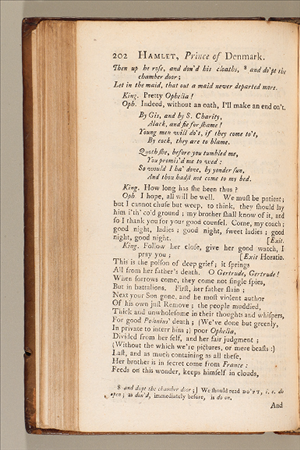 202 HAMLET, Prince of Denmark.
Then up he rose, and don'd his cloaths, ⁸ and do'pt the
chamber door;
Let in the maid, that out a maid never departed more.
King. Pretty Ophelia!
Oph. Indeed, without an oath, I'll make an end on't.
By Gis, and by S. Charity,
Alack, and fie for shame!
Young men will do't, if they come to't,
By cock, they are to blame.
Quoth she, before you tumbled me,
You promis'd me to wed:
So would I ha' done, by yonder sun,
And thou hadst not come to my bed.
King. How long has she been thus?
Oph I hope, all will be well. We must be patient;
but I cannot chuse but weep, to think, they should lay
him i'th' co'd ground; my brother shall know of it, and
so I thank you for your good counsel. Come, my coach;
good night, ladies; good night, sweet ladies; good
night, good night.
[Exit.
King. Follow her close, give her good watch, I
pray you;
[Exit Horatio.
This is the poison of deep grief; it springs
All from her father's death. O Gertrude, Gertrude!
When sorrows come, they come not single spies,
But in battalions. First, her father slain;
Next your Son gone, and he most violent author
Of his own just Remove; the people muddied,
Thick and unwholesome in their thoughts and whispers,
For good Polonius' death; (We've done but greenly,
In private to interr him;) poor Ophelia,
Divided from her self, and her fair judgment;
(Without the which we're pictures, or mere beasts:)
Last, and as much containing as all these,
Her brother is in secret come from France:
Feeds on this wonder, keeps himself in clouds,
8 and dupt the chamber door;] We should read
i. e. do
open; as don'd, immediately before, is do on.
And